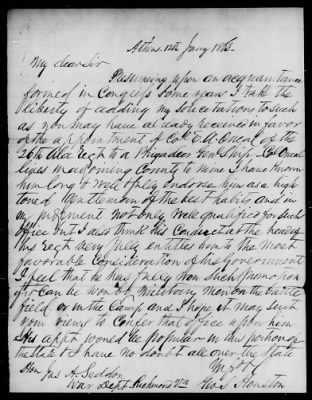 Athens. 12th Jany 1863.
My dear Sir
Presuming upon an acquaintance
formed in Congress some years I take the
liberty of adding my solicitations to such
as you may have already received in favor
of the appointment of Col. E. A. Oneal of the
26th Ala Regt to a Brigadier Genl Ship. Col Oneal
lives in adjoining County to mine I have known
him long & well & fully endorse him as a high
toned Gentleman of the best habits, and in
my judgment not only well qualified for such
office but I also think his Conduct at the head of
his Regt very fully entitles him to the most
favorable consideration of his Government
I feel that he has fully won such promotion
if it can be won by military men on the battle
field, or in the Camp and I hope it may suit
your views to Confer that office upon him
His appt would be popular in this portion of
the State & I have no doubt all over the State
Hon Jas A. Seddon
War Dept Richmond Va
Geo. S. Houston